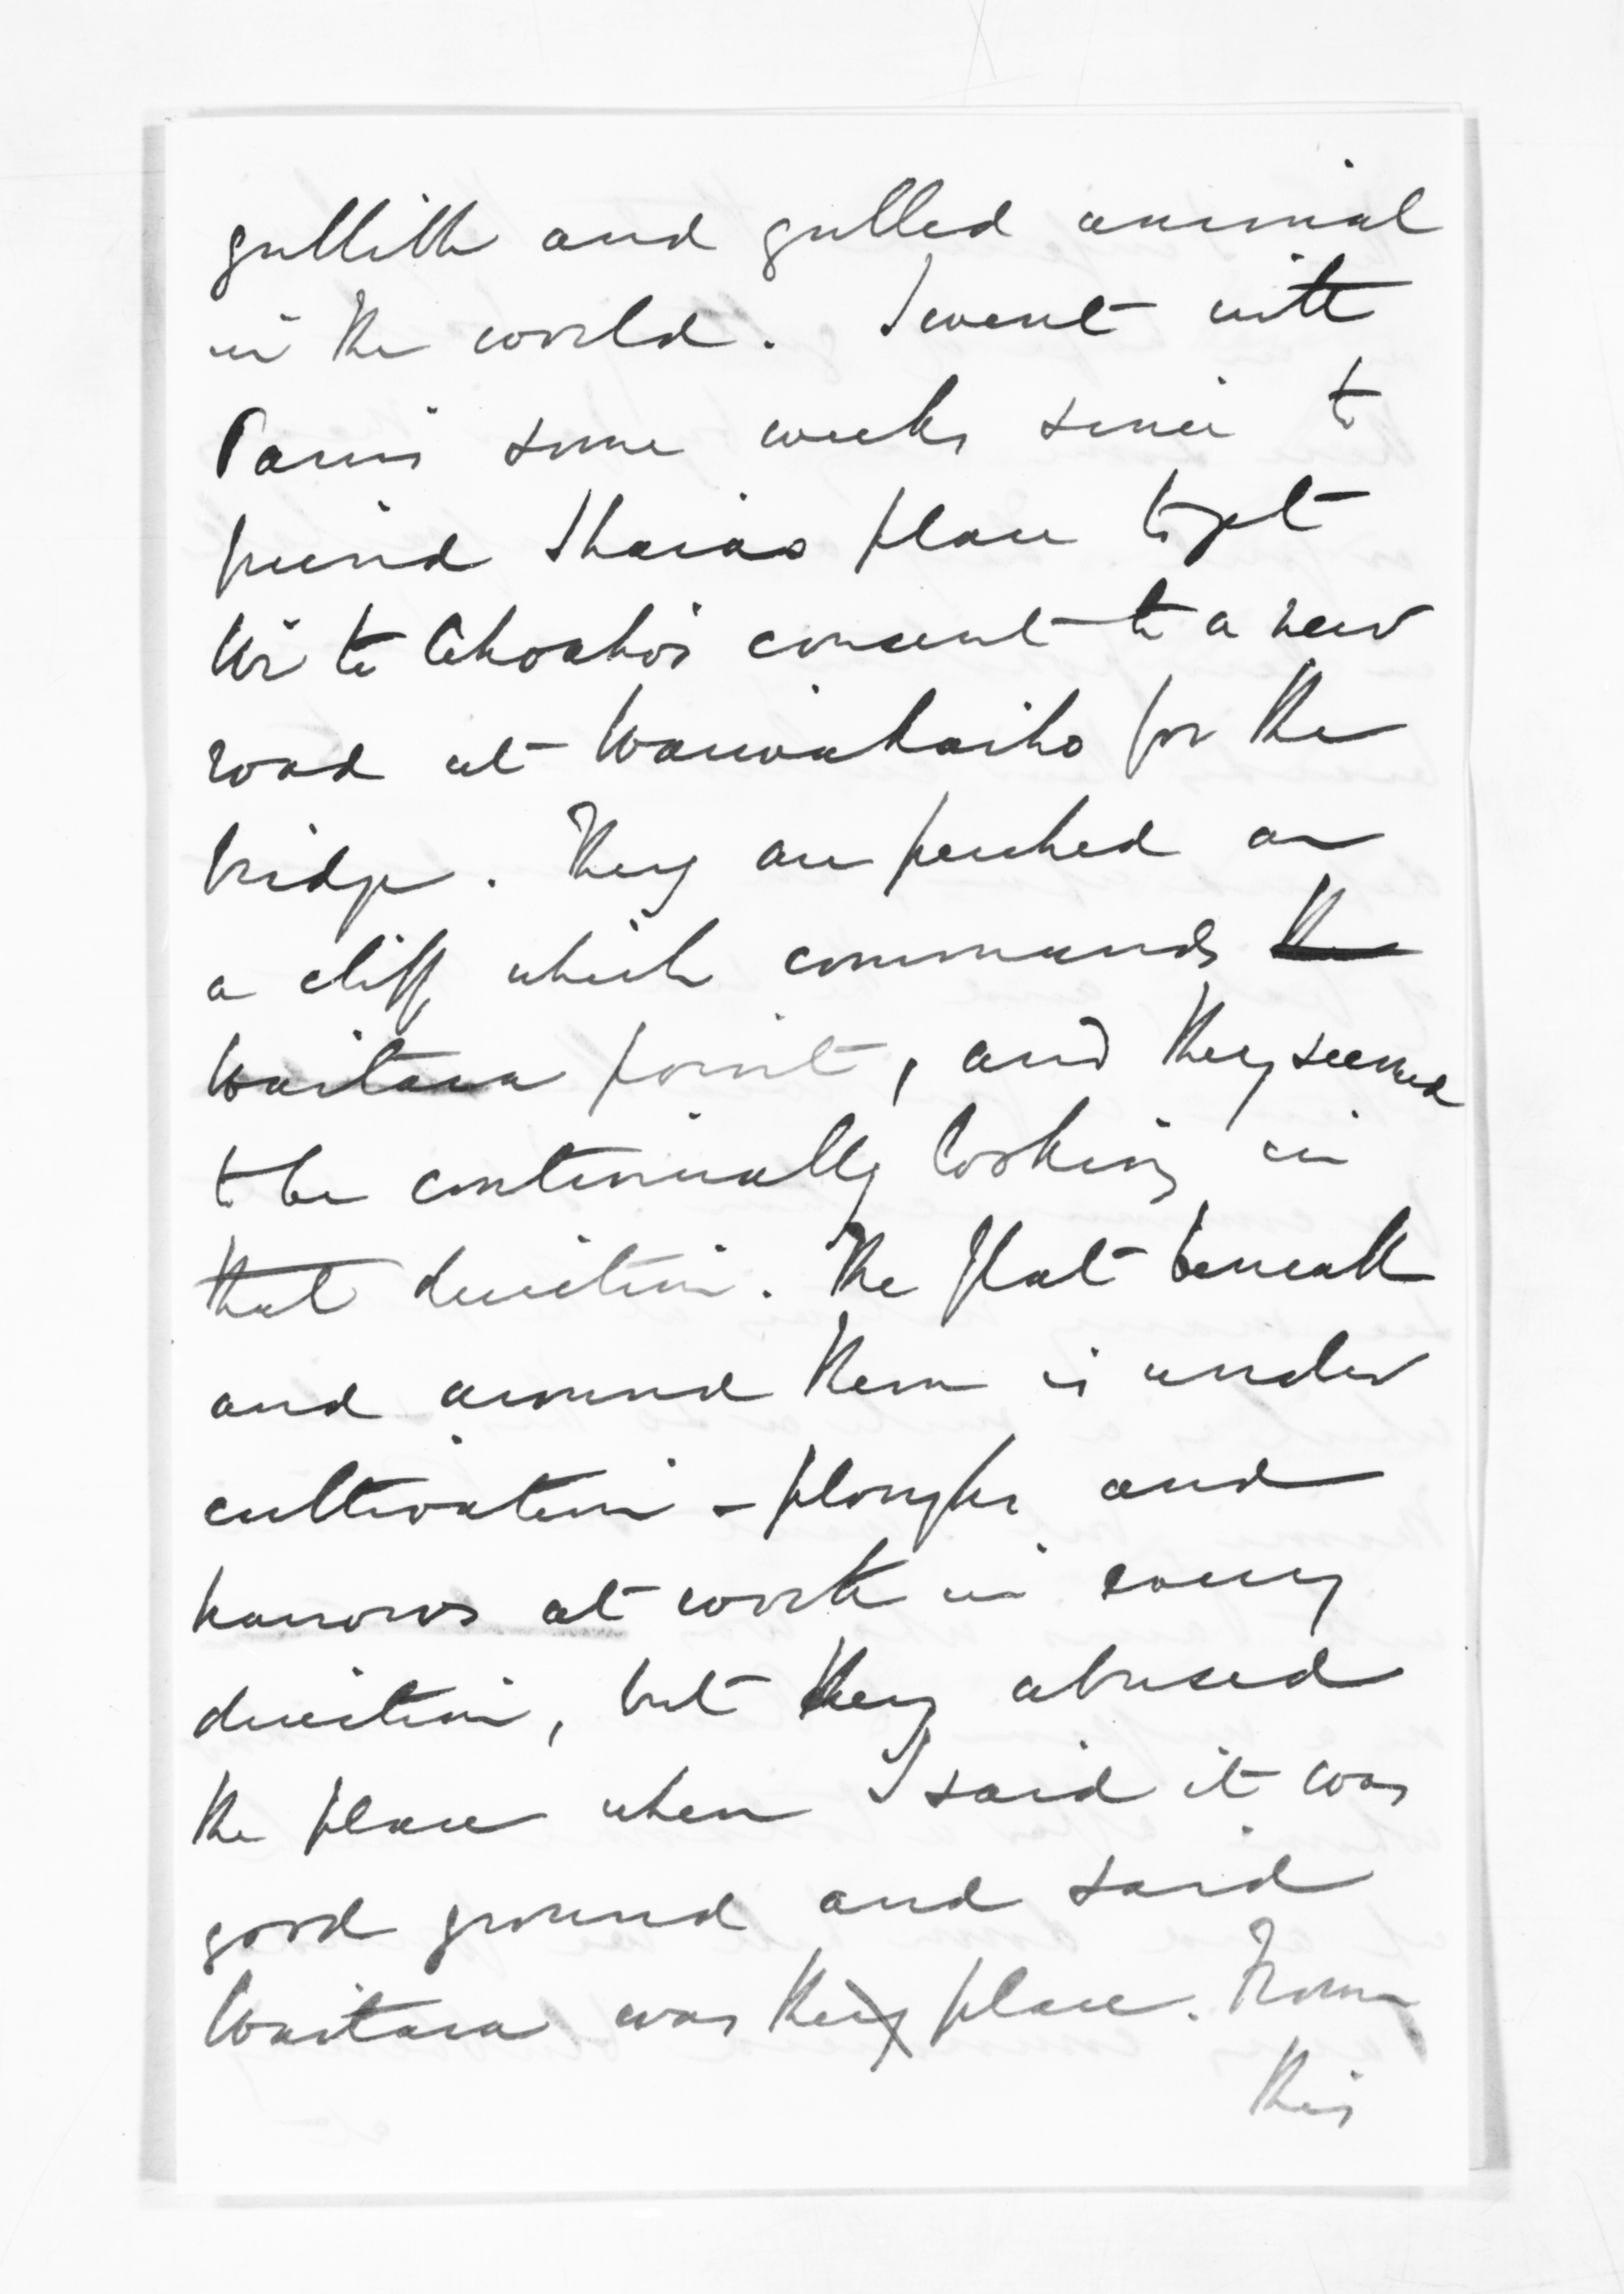 gullible and gulled animal
in the world. I went with
Parris some weeks since to
friend Ihaias place to get
Wi te Ahoahos consent to a new
road at Waiwakaiho for the
bridge. They are perched on
a cliff which commands the
Waitara point, and they seemed
to be continually looking in
that direction. The flat beneath
and around them is under
cultivation - ploughs and
harrows at work in every
direction, but they abused
the place when I said it was
good ground and said
Waitara was they place. From
this